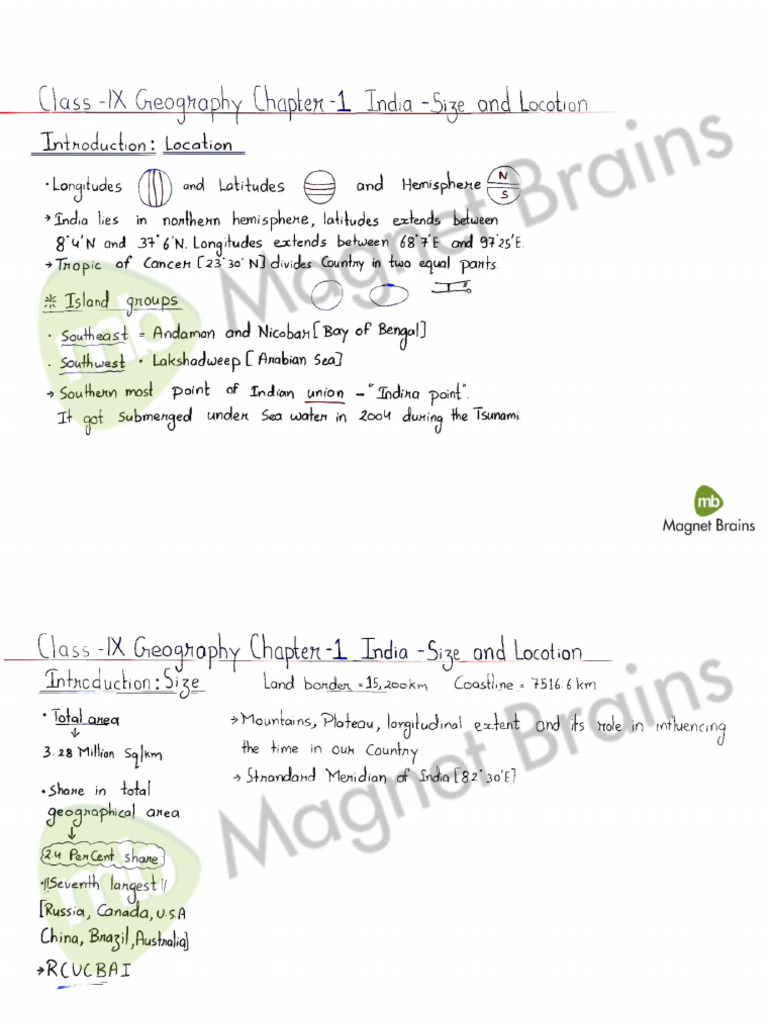 Class-IX Geography Chapter-1 India-Size and Location
Introduction: Location
• Longitudes and Latitudes and Hemisphere N
S
→ India lies in northern hemisphere, latitudes extends between
8°4'N and 37°6'N. Longitudes extends between 68°7'E and 97°25'E.
→ Tropic of Cancer [23°30'N] divides Country in two equal parts.
* Island groups
• Southeast = Andaman and Nicobar [Bay of Bengal]
• Southwest • Lakshadweep [Arabian Sea]
→ Southern most point of Indian union - "Indira point".
It got submerged under Sea water in 2004 during the Tsunami.
mb
Magnet Brains
mb
Magnet Brains
Class-IX Geography Chapter-1 India-Size and Location
Introduction: Size
Land border = 15,200km Coastline = 7516.6 km
• Total area
↓
3.28 Million Sq/km
• Share in total
geographical area
↓
2.4 Percent share
• "Seventh largest"
[Russia, Canada, U.S.A
China, Brazil, Australia]
→ RCUCBAI
→ Mountains, Plateau, longitudinal extent and its role in influencing
the time in our Country
→ Strandard Meridian of India [82°30'E]
mb
Magnet Brains